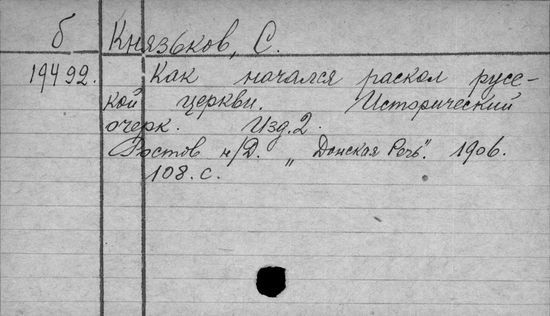 б Князьков, С.
19492. Как начался раскол русс-
кой церкви. Исторический
очерк. Изд. 2.
Ростов н/Д. „Донская Речь". 1906.
108. с.